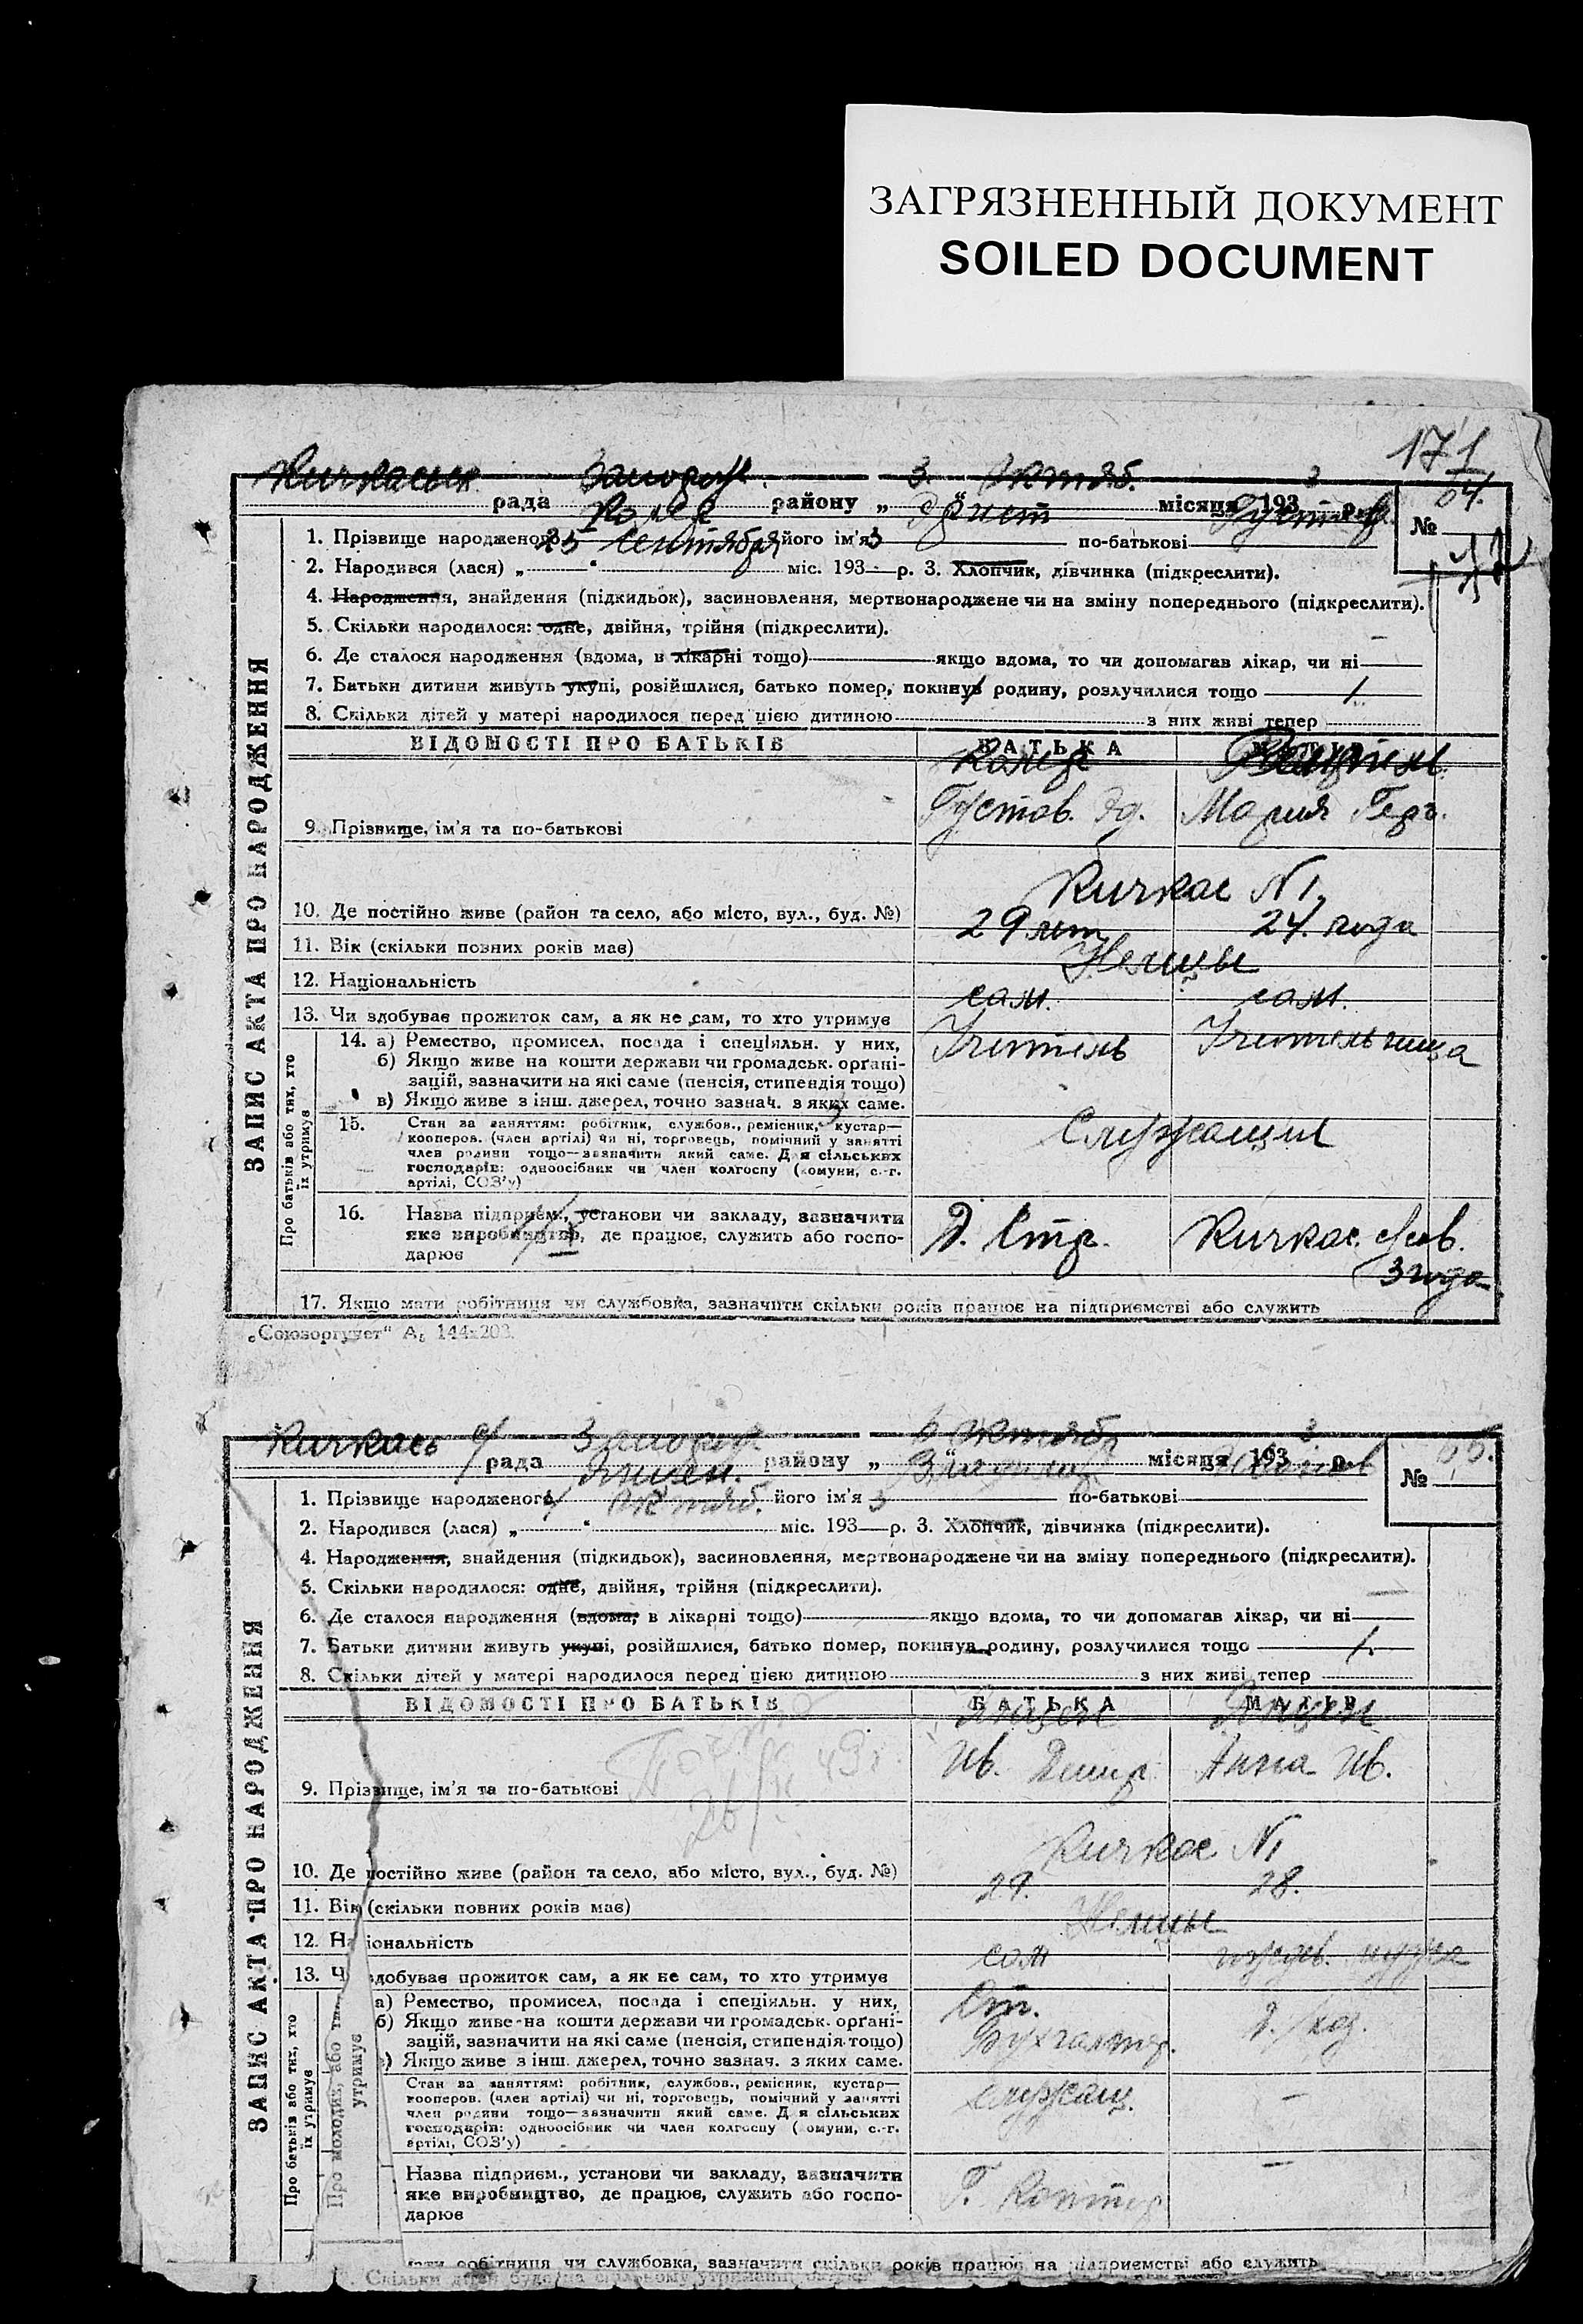 ЗАГРЯЗНЕННЫЙ ДОКУМЕНТ
SOILED DOCUMENT
171
Кичкаськ рада Запорізь. району „ 3 " Октяб. місяця 193 3 р.
№ 64.
ЗАПИС АКТА ПРО НАРОДЖЕННЯ
1. Прізвище народженого його ім'я Эрнст по-батькові Густав.
2. Народився (лася) „ 25 " Сентября міс. 193 3 р. 3. Хлопчик, дівчинка (підкреслити).
4. Народження, знайдення (підкидьок), засиновлення, мертвонароджене чи на зміну попереднього (підкреслити).
5. Скільки народилося: одне, двійня, трійня (підкреслити).
6. Де сталося народження (вдома, в лікарні тощо) якщо вдома, то чи допомагав лікар, чи ні —
7. Батьки дитини живуть укупі, розійшлися, батько помер, покинув родину, розлучилися тощо
8. Скільки дітей у матері народилося перед цією дитиною 1 з них живі тепер 1.
ВІДОМОСТІ ПРО БАТЬКІВ БАТЬКА МАТІР
9. Прізвище, ім'я та по-батькові Густав. Эд. Мария Герг.
10. Де постійно живе (район та село, або місто, вул., буд. №) Кичкас N 1.
11. Вік (скільки повних років має) 29 лет 24. года
12. Національність Немцы
13. Чи здобуває прожиток сам, а як не сам, то хто утримує сам. сам.
Про батьків або тих, хто їх утримує
14. а) Ремество, промисел, посада і спеціяльн. у них, Учитель Учительница
б) Якщо живе на кошти держави чи громадськ. органі-
зацій, зазначити на які саме (пенсія, стипендія тощо)
в) Якщо живе з інш. джерел, точно зазнач. з яких саме.
15. Стан за заняттям: робітник, службов., ремісник, кустар— Служащие
кооперов. (член артілі) чи ні, торговець, помічний у занятті
член родини тощо—зазначити який саме. Для сільських
господарів: одноосібник чи член колгоспу (комуни, с.-г.
артілі, СОЗ'у)
16. Назва підприєм., установи чи закладу, зазначити Д. Стр. Кичкас.
яке виробництво, де працює, служить або госпо-
дарює
17. Якщо мати робітниця чи службовка, зазначити скільки років працює на підприємстві або служить 3 года
„Союзоргучет" А₅ 144х203.
Кичкась с/ рада Запорізь. району „ 6 " Октябр місяця 193 3 р.
№ 65.
ЗАПИС АКТА ПРО НАРОДЖЕННЯ
1. Прізвище народженого Янцен. його ім'я по-батькові Иванов
2. Народився (лася) „ 1 " Октяб. міс. 193 3 р. 3. Хлопчик, дівчинка (підкреслити).
4. Народження, знайдення (підкидьок), засиновлення, мертвонароджене чи на зміну попереднього (підкреслити).
5. Скільки народилося: одне, двійня, трійня (підкреслити).
6. Де сталося народження (вдома, в лікарні тощо) якщо вдома, то чи допомагав лікар, чи ні —
7. Батьки дитини живуть укупі, розійшлися, батько помер, покинув родину, розлучилися тощо
8. Скільки дітей у матері народилося перед цією дитиною 1 з них живі тепер 1.
ВІДОМОСТІ ПРО БАТЬКІВ БАТЬКА МАТІР
Янцен Янцен
9. Прізвище, ім'я та по-батькові Ив. Анна Ив.
10. Де постійно живе (район та село, або місто, вул., буд. №) Кичкас N 1
11. Вік (скільки повних років має) 29. 28.
12. Національність Немцы
13. Чи здобуває прожиток сам, а як не сам, то хто утримує сам иждив. мужа
Про батьків або тих, хто їх утримує
Про молодих, або утримує
а) Ремество, промисел, посада і спеціяльн. у них, Ст. Д. /хоз.
б) Якщо живе на кошти держави чи громадськ. органі- Бухгалтер.
зацій, зазначити на які саме (пенсія, стипендія тощо)
в) Якщо живе з інш. джерел, точно зазнач. з яких саме.
Стан за заняттям: робітник, службов., ремісник, кустар— служащ. —
кооперов. (член артілі) чи ні, торговець, помічний у занятті
член родини тощо—зазначити який саме. Для сільських
господарів: одноосібник чи член колгоспу (комуни, с.-г.
артілі, СОЗ'у)
Назва підприєм., установи чи закладу, зазначити —
яке виробництво, де працює, служить або госпо-
дарює
мати робітниця чи службовка, зазначити скільки років працює на підприємстві або служить